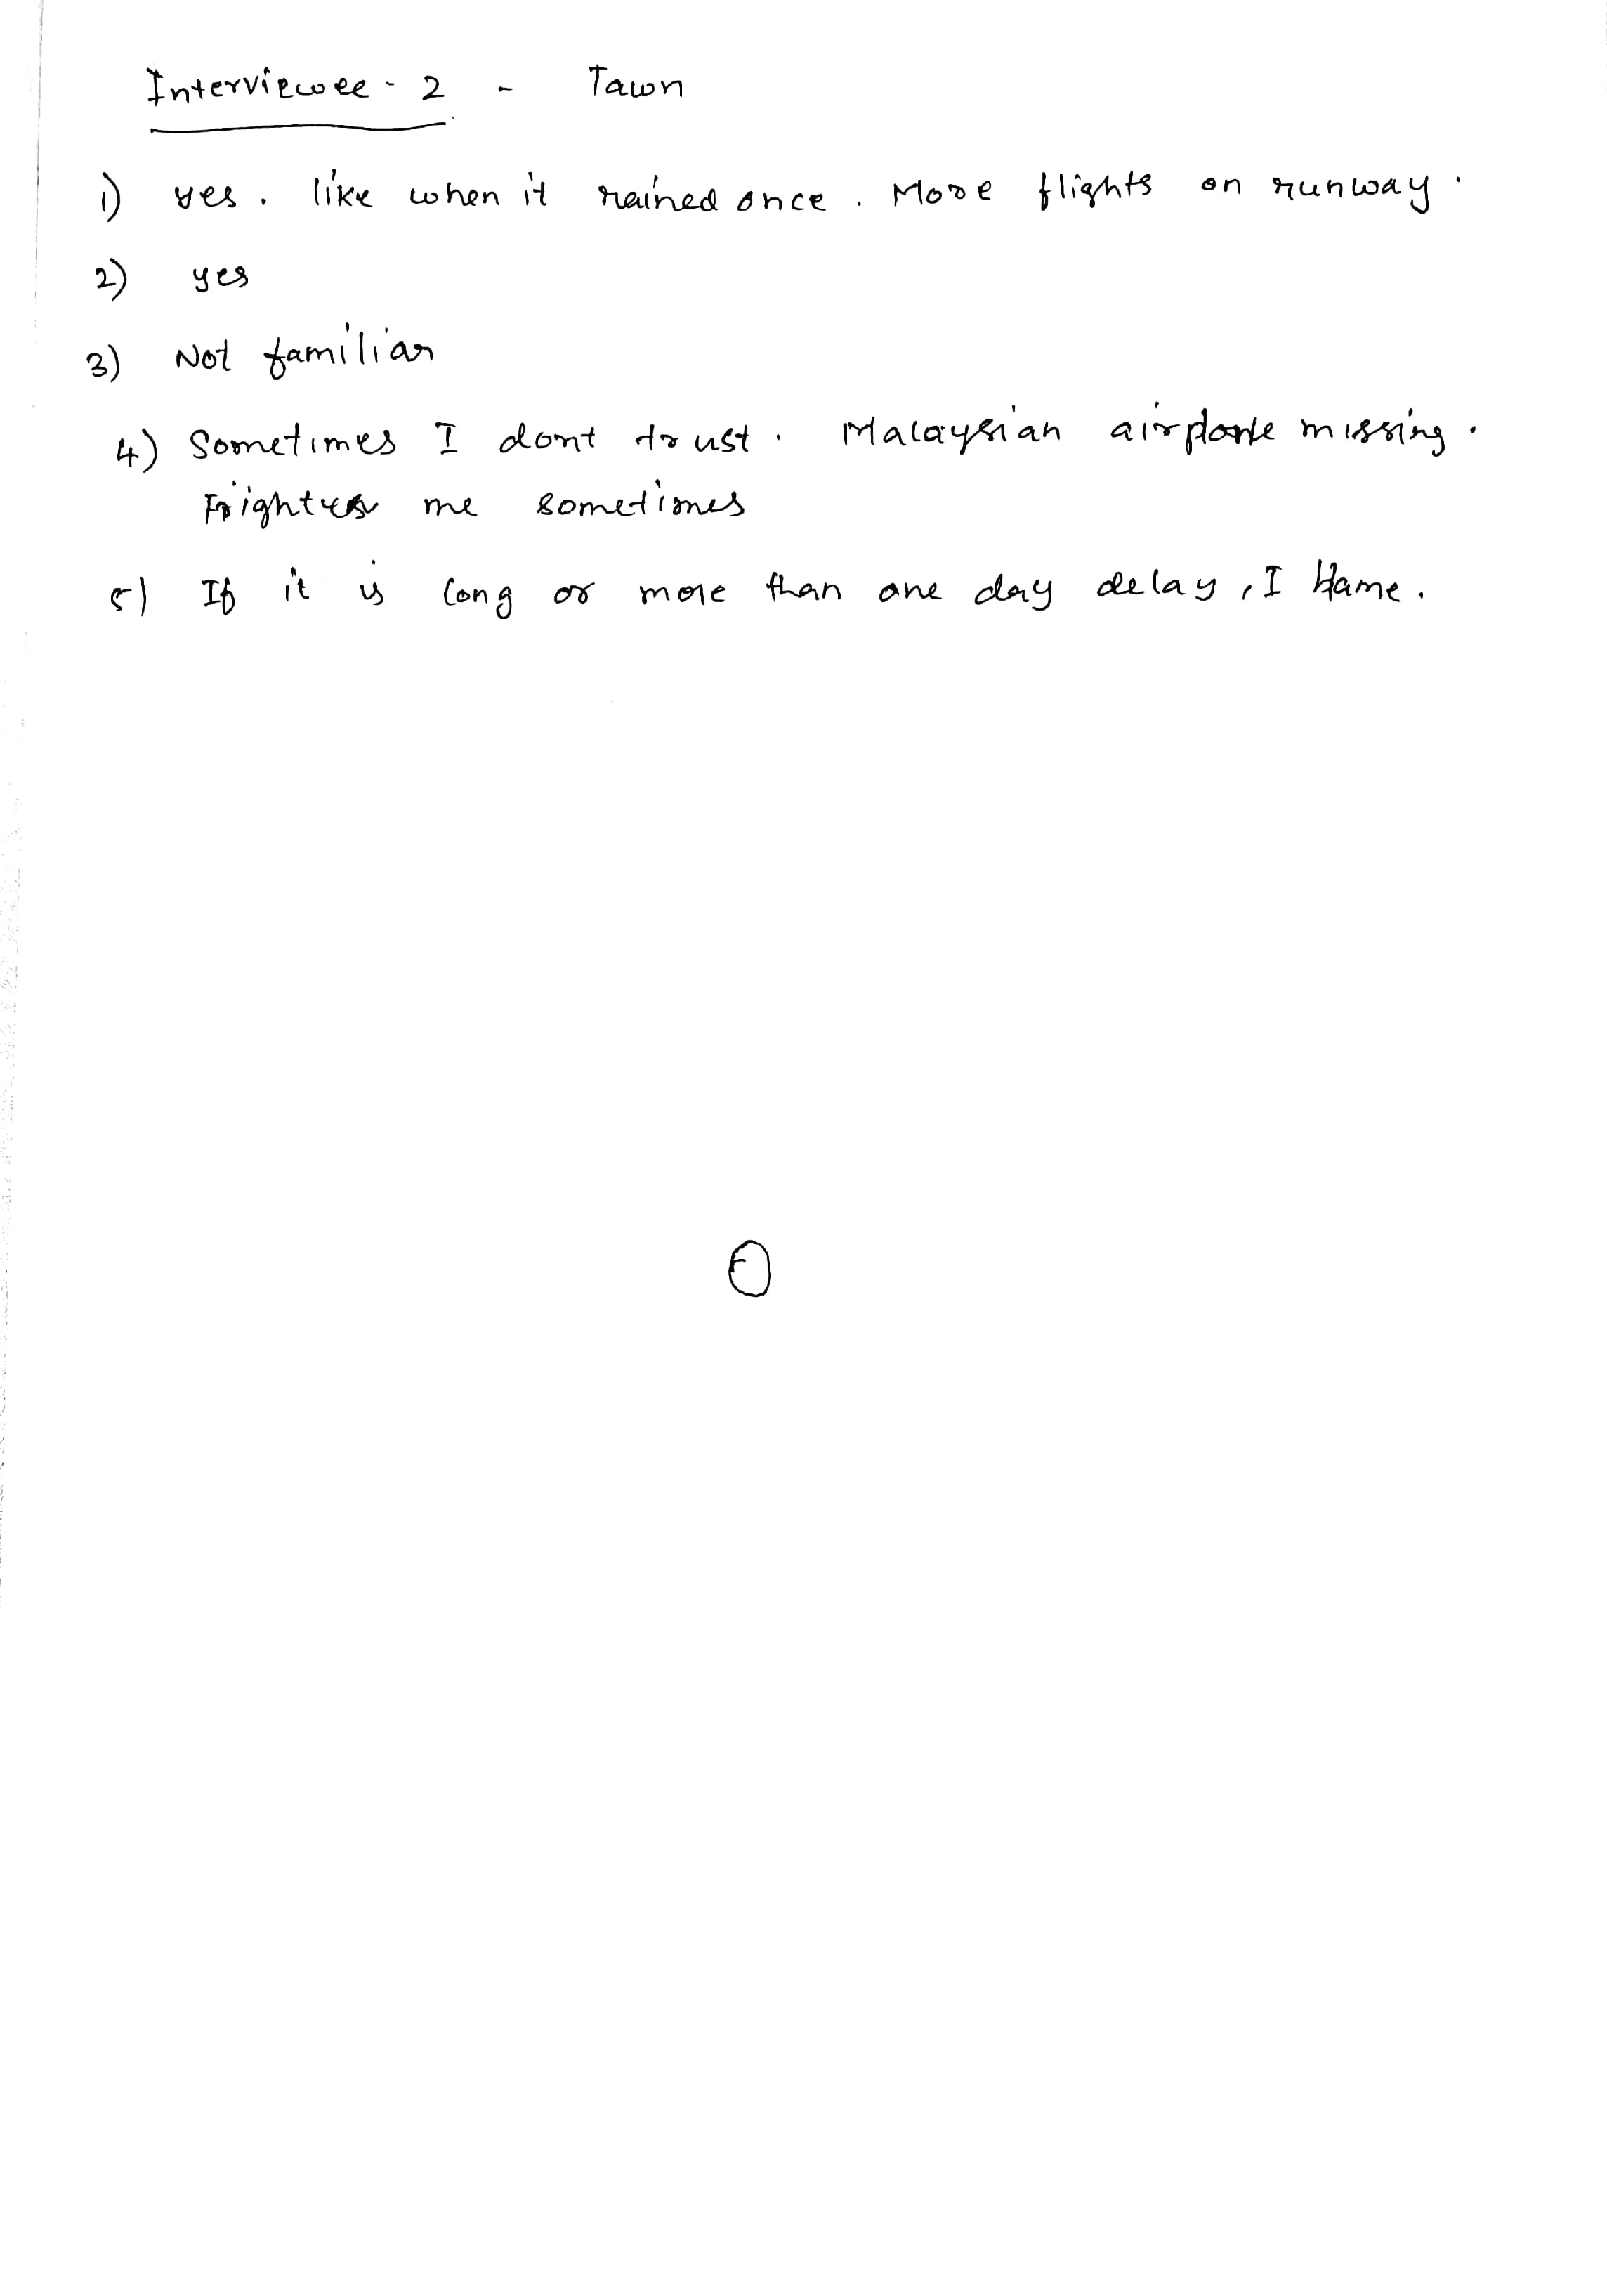 Interviewee - 2 - Tawn
1) yes. like when it rained once. More flights on runway.
2) yes
3) Not familiar
4) Sometimes I dont trust. Malaysian airplane missing.
me sometimes
5) If it is long or more than one day delay, I blame.